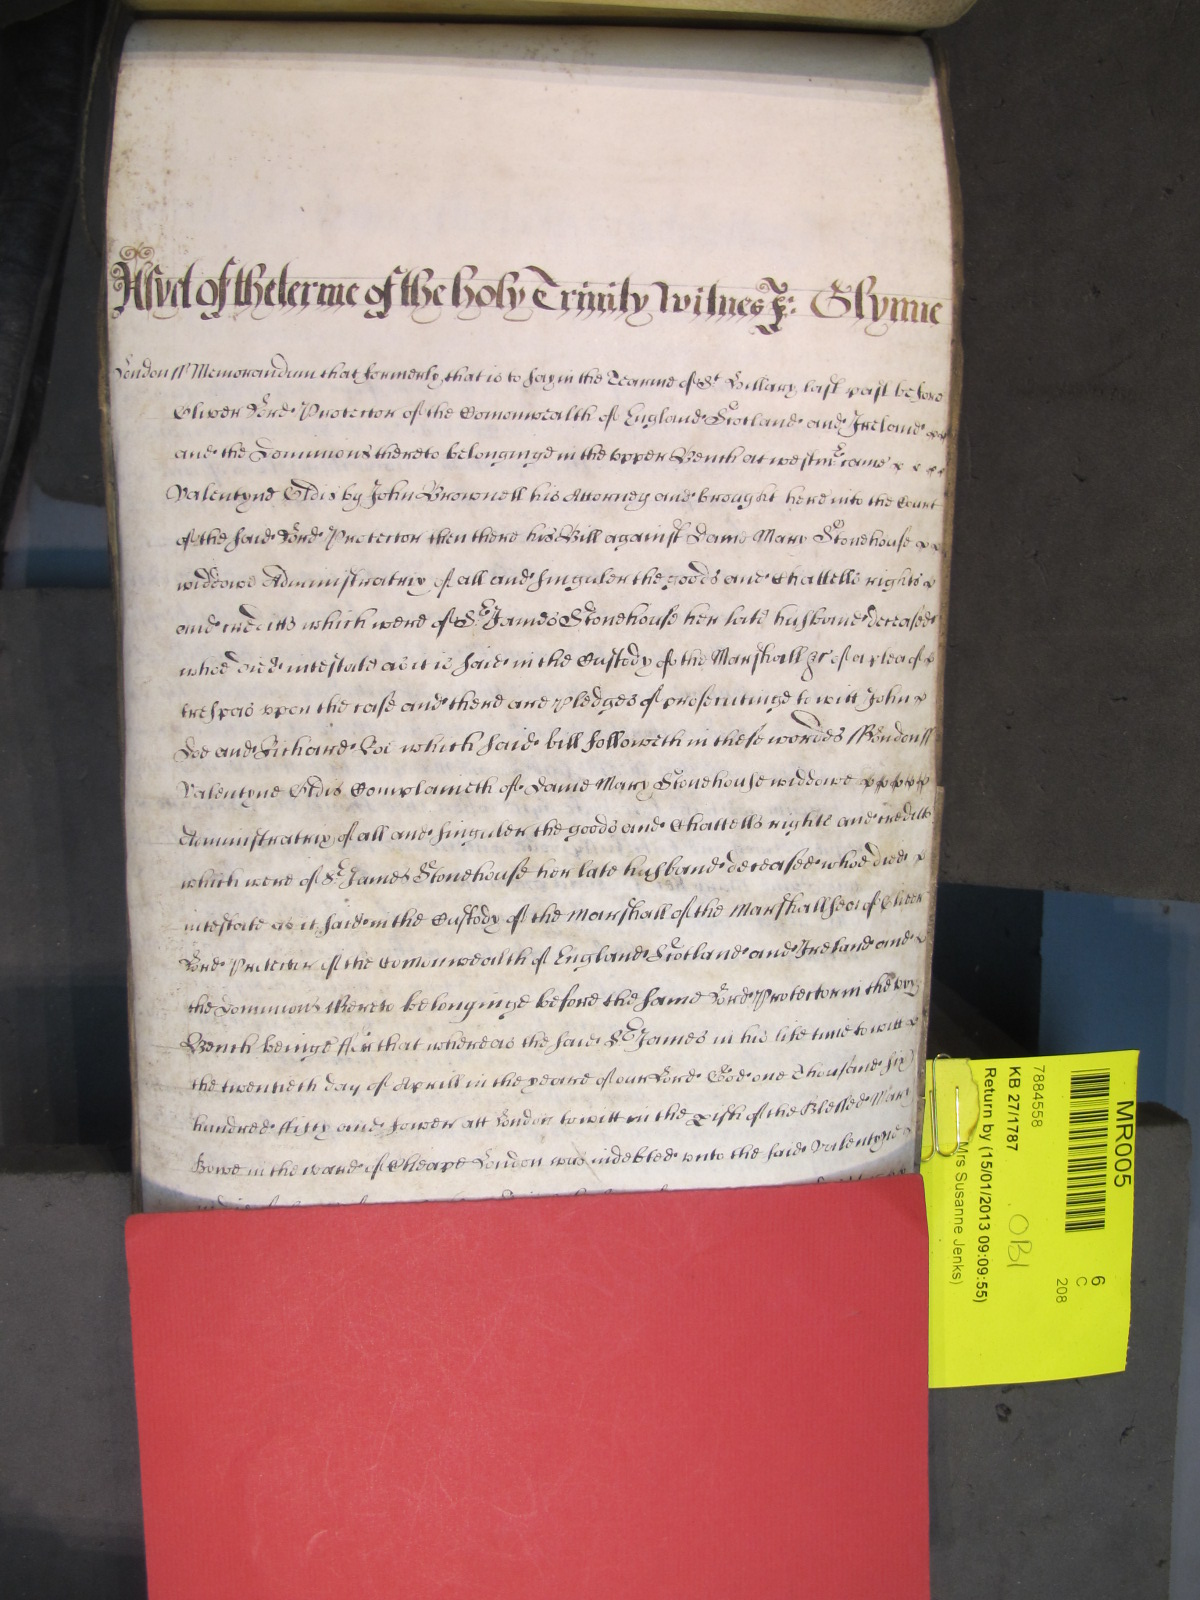 As yet of the terme of the holy Trinity Witnes J: Glynne
London ss Memorandum that formerly that is to say in the Tearme of St Hillary last past before
Oliver Lord Protector of the Comonwealth of England Scotland and Ireland
and the Dominions thereto belonginge in the upper Bench at westmr came
Valentyne Eldis by John Brownell his Attorney and brought here into the Court
of the said Lord Protector then there his Bill against Dame Mary Stonehouse
widdowe Administratrix of all and singuler the goods and Chattells rights
and creditts which were of Sr James Stonehouse her late husband deceased
whoe died intestate as it is said in the Custody of the Marshall &c of a plea of
trespas uppon the case and there are pledges of prosecutinge to witt John
Doe and Richard Roe which said bill followeth in these wordes ss London ss
Valentyne Eldis Complaineth of Dame Mary Stonehouse widdowe
Administratrix of all and singuler the goods and Chattells rights and creditts
which were of Sr James Stonehouse her late husband deceased whoe died
intestate as it said in the Custody of the Marshall of the Marshallsea of Oliver
Lord Protector of the Comonwealth of England Scotland and Ireland and
the Dominions thereto belonginge before the same Lord Protector in the upp
Bench beinge For that whereas the said Sr James in his life time to witt
the twentieth day of Aprill in the yeare of our Lord God one Thousand six
hundred fifty and fower att London to witt in the Pish of the Blessed Mary
Bowe in the ward of Cheape London was indebted unto the said Valentyne
MR005
6
C
208
7884558
KB 27/1787
OBI
Return by (15/01/2013 09:09:55)
Mrs Susanne Jenks)